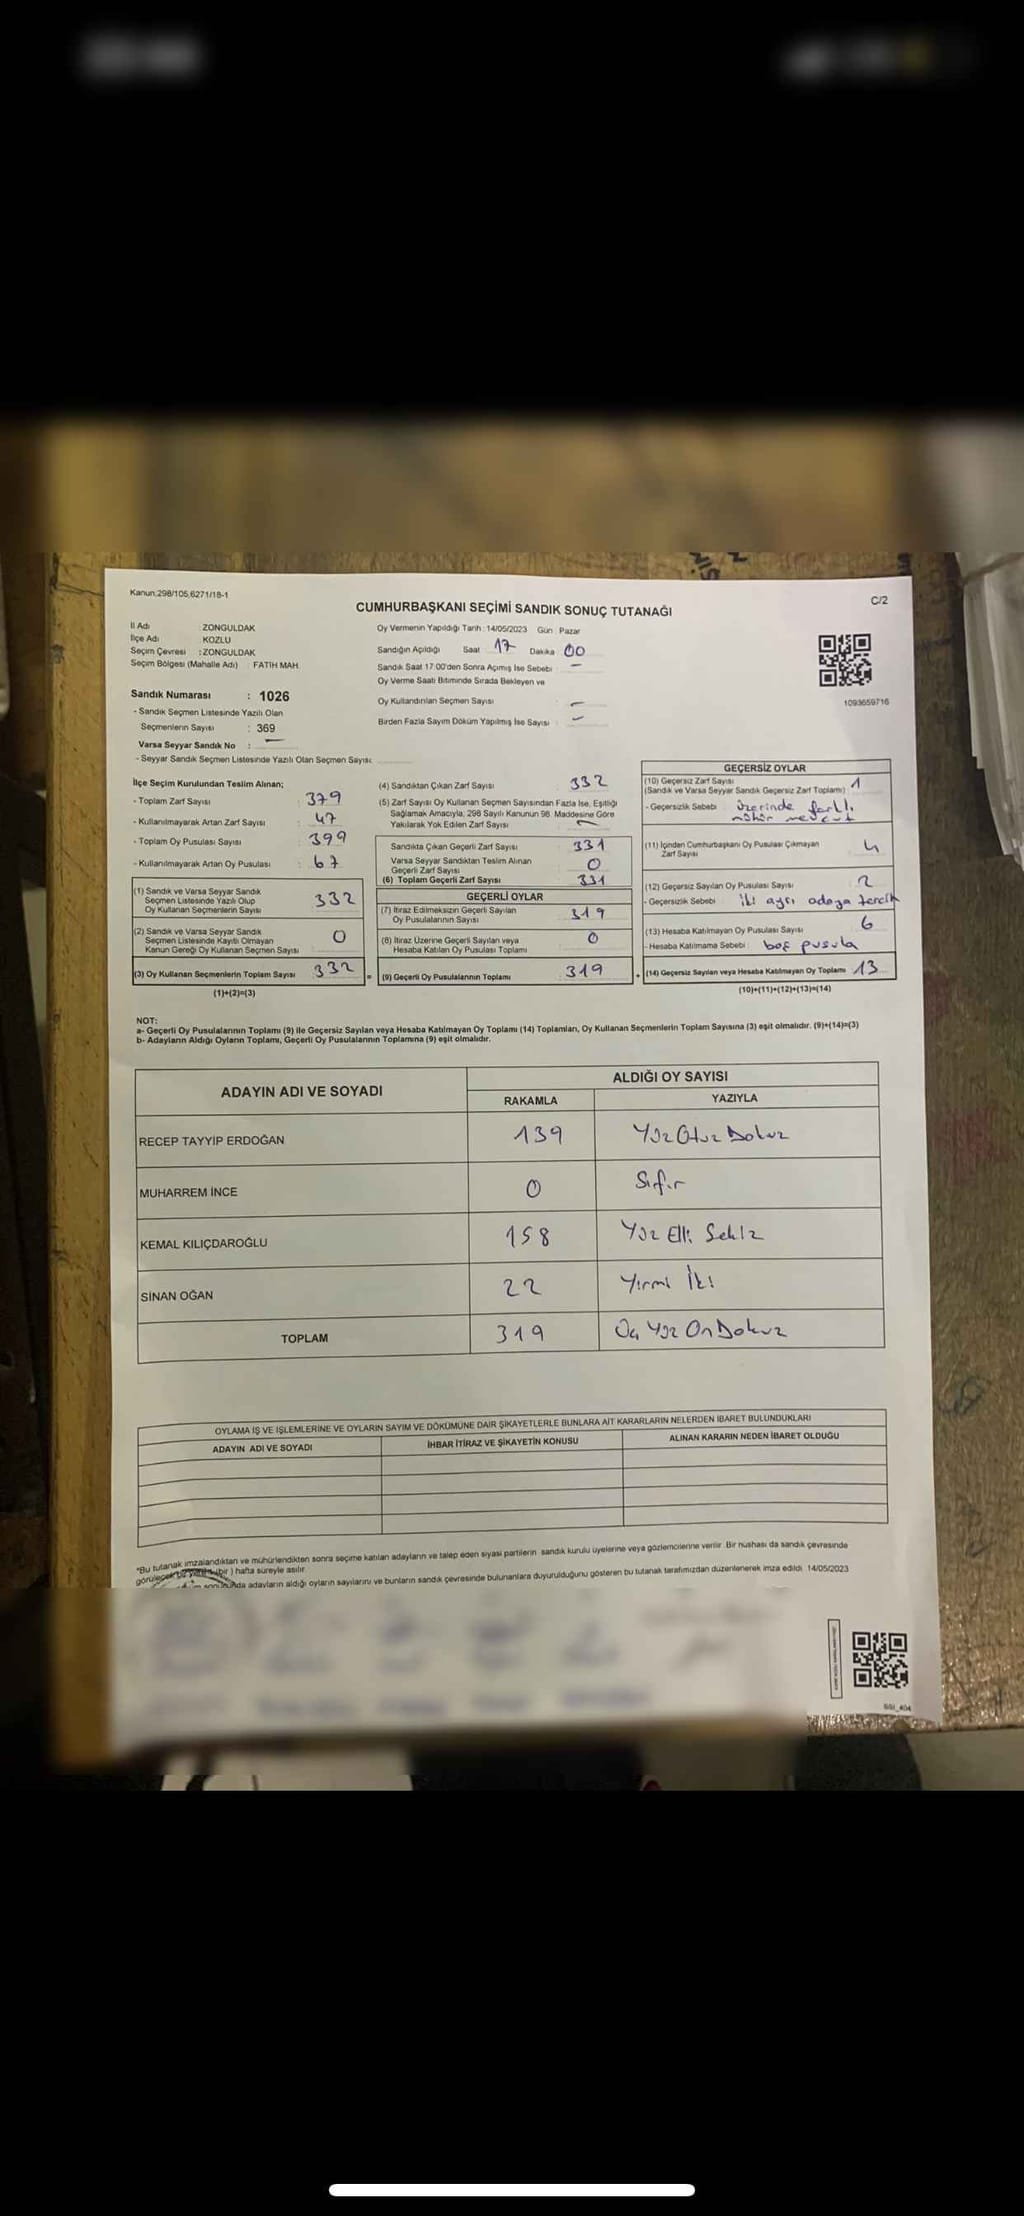 Kanun;298/105,6271/18-1
C/2
CUMHURBAŞKANI SEÇİMİ SANDIK SONUÇ TUTANAĞI
İl Adı : ZONGULDAK
İlçe Adı : KOZLU
Seçim Çevresi : ZONGULDAK
Seçim Bölgesi (Mahalle Adı) : FATİH MAH.
Sandık Numarası : 1026
- Sandık Seçmen Listesinde Yazılı Olan
Seçmenlerin Sayısı : 369
Varsa Seyyar Sandık No : —
- Seyyar Sandık Seçmen Listesinde Yazılı Olan Seçmen Sayısı:
Oy Vermenin Yapıldığı Tarih : 14/05/2023 Gün : Pazar
Sandığın Açıldığı Saat 17 Dakika 00
Sandık Saat 17:00'den Sonra Açılmış İse Sebebi : —
Oy Verme Saati Bitiminde Sırada Bekleyen ve
Oy Kullandırılan Seçmen Sayısı : —
Birden Fazla Sayım Döküm Yapılmış İse Sayısı : —
1093659716
İlçe Seçim Kurulundan Teslim Alınan;
- Toplam Zarf Sayısı : 379
- Kullanılmayarak Artan Zarf Sayısı : 47
- Toplam Oy Pusulası Sayısı : 399
- Kullanılmayarak Artan Oy Pusulası : 67
(1) Sandık ve Varsa Seyyar Sandık
Seçmen Listesinde Yazılı Olup
Oy Kullanan Seçmenlerin Sayısı 332
(2) Sandık ve Varsa Seyyar Sandık
Seçmen Listesinde Kayıtlı Olmayan
Kanun Gereği Oy Kullanan Seçmen Sayısı 0
(3) Oy Kullanan Seçmenlerin Toplam Sayısı 332
(1)+(2)=(3)
(4) Sandıktan Çıkan Zarf Sayısı : 332
(5) Zarf Sayısı Oy Kullanan Seçmen Sayısından Fazla İse, Eşitliği
Sağlamak Amacıyla, 298 Sayılı Kanunun 98. Maddesine Göre
Yakılarak Yok Edilen Zarf Sayısı : —
Sandıkta Çıkan Geçerli Zarf Sayısı : 331
Varsa Seyyar Sandıktan Teslim Alınan
Geçerli Zarf Sayısı : 0
(6) Toplam Geçerli Zarf Sayısı : 331
GEÇERLİ OYLAR
(7) İtiraz Edilmeksizin Geçerli Sayılan
Oy Pusulalarının Sayısı : 319
(8) İtiraz Üzerine Geçerli Sayılan veya
Hesaba Katılan Oy Pusulası Toplamı : 0
= (9) Geçerli Oy Pusulalarının Toplamı : 319
GEÇERSİZ OYLAR
(10) Geçersiz Zarf Sayısı 1
(Sandık ve Varsa Seyyar Sandık Geçersiz Zarf Toplamı) :
- Geçersizlik Sebebi : üzerinde farklı
mühür mevcut
(11) İçinden Cumhurbaşkanı Oy Pusulası Çıkmayan
Zarf Sayısı : 4
(12) Geçersiz Sayılan Oy Pusulası Sayısı : 2
- Geçersizlik Sebebi : iki ayrı adaya tercih
(13) Hesaba Katılmayan Oy Pusulası Sayısı : 6
- Hesaba Katılmama Sebebi : boş pusula
+ (14) Geçersiz Sayılan veya Hesaba Katılmayan Oy Toplamı : 13
(10)+(11)+(12)+(13)=(14)
NOT:
a- Geçerli Oy Pusulalarının Toplamı (9) ile Geçersiz Sayılan veya Hesaba Katılmayan Oy Toplamı (14) Toplamları, Oy Kullanan Seçmenlerin Toplam Sayısına (3) eşit olmalıdır. (9)+(14)=(3)
b- Adayların Aldığı Oyların Toplamı, Geçerli Oy Pusulalarının Toplamına (9) eşit olmalıdır.
ADAYIN ADI VE SOYADI
ALDIĞI OY SAYISI
RAKAMLA YAZIYLA
RECEP TAYYİP ERDOĞAN 139 Yüz Otuz Dokuz
MUHARREM İNCE 0 Sıfır
KEMAL KILIÇDAROĞLU 158 Yüz Elli Sekiz
SİNAN OĞAN 22 Yirmi İki
TOPLAM 319 Üç Yüz On Dokuz
OYLAMA İŞ VE İŞLEMLERİNE VE OYLARIN SAYIM VE DÖKÜMÜNE DAİR ŞİKAYETLERLE BUNLARA AİT KARARLARIN NELERDEN İBARET BULUNDUKLARI
ADAYIN ADI VE SOYADI İHBAR İTİRAZ VE ŞİKAYETİN KONUSU ALINAN KARARIN NEDEN İBARET OLDUĞU
*Bu tutanak imzalandıktan ve mühürlendikten sonra seçime katılan adayların ve talep eden siyasi partilerin sandık kurulu üyelerine veya gözlemcilerine verilir. Bir nüshası da sandık çevresinde
görülecek bir (bir) hafta süreyle asılır.
sonucunda adayların aldığı oyların sayılarını ve bunların sandık çevresinde bulunanlara duyurulduğunu gösteren bu tutanak tarafımızdan düzenlenerek imza edildi. 14/05/2023